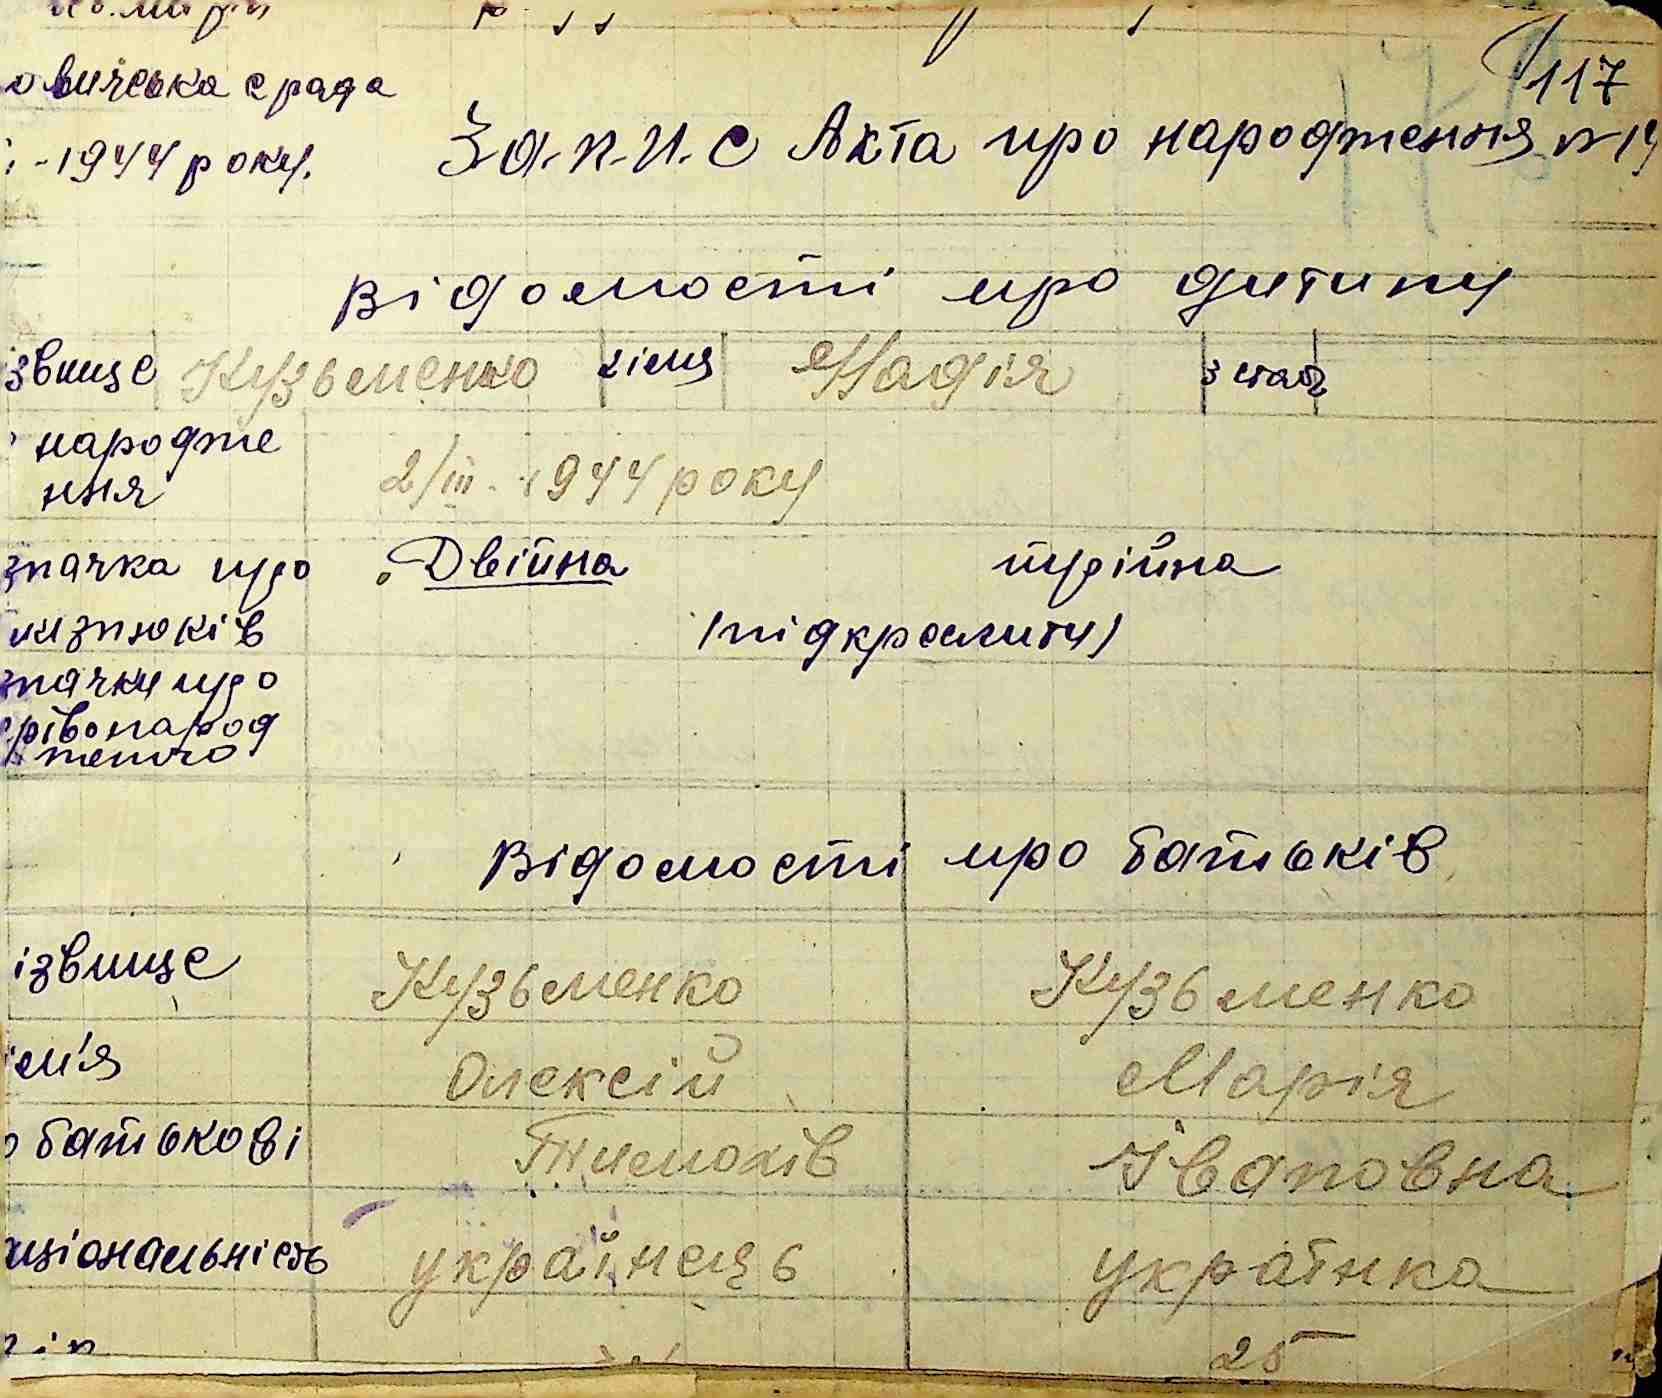 117
овичська с рада
За.п.и.с Акта про народження №14
-1944 року.
Відомості про дитину
ізвище Кузьменко ім'я Надія стать
народже
ння
2/III-1944 року
значка про Двійна трійна
лизнюків (підкреслити)
значки про
рівонарод
женого
Відомості про батьків
ізвище Кузьменко Кузьменко
ім'я Олексій Марія
о батькові Тимохів Івановна
аціональність українець українка
вік 25